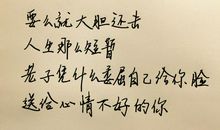 要么就大胆还击
人生那么短暂
老子凭什么委屈自己给你脸
送给心情不好的你